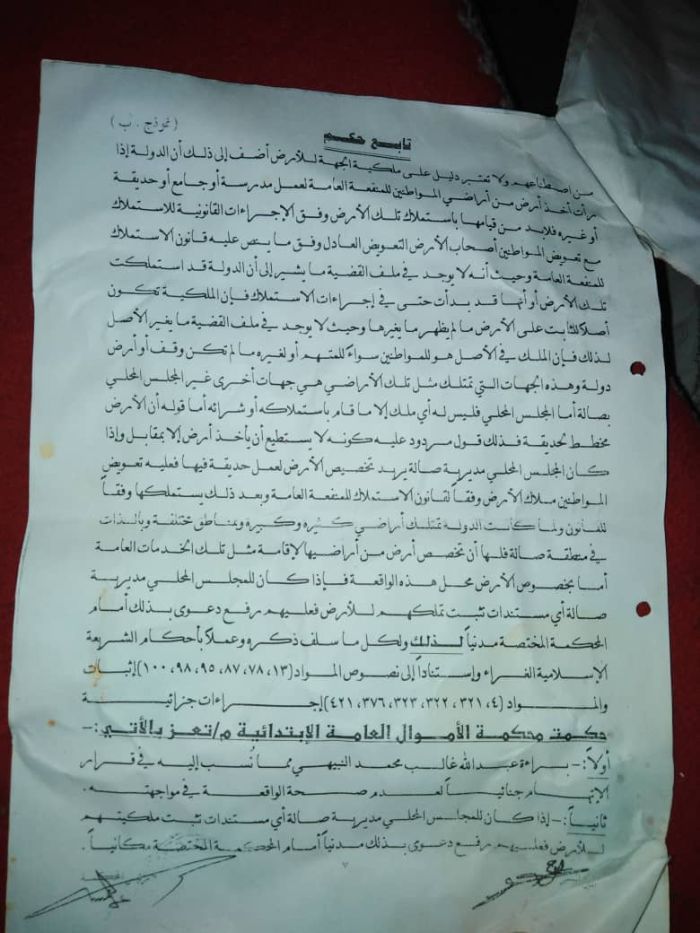 (نموذج . ب)
تابع حكم
من اصطناعهم ولا تعتبر دليل على ملكية الجهة للأرض أضف إلى ذلك أن الدولة إذا
رأت أخذ أرض من أراضي المواطنين للمنفعة العامة لعمل مدرسة أو جامع أو حديقة
أو غيره فلابد من قيامها باستملاك تلك الأرض وفق الإجراءات القانونية للاستملاك
مع تعويض المواطنين أصحاب الأرض التعويض العادل وفق ما ينص عليه قانون الاستملاك
للمنفعة العامة وحيث أنه لا يوجد في ملف القضية ما يشير إلى أن الدولة قد استملكت
تلك الأرض أو أنها قد بدأت حتى في إجراءات الاستملاك فإن الملكية تكون
أصلاً للثابت على الأرض ما لم يظهر ما يغيرها وحيث لا يوجد في ملف القضية ما يغير الأصل
لذلك فإن الملك في الأصل هو للمواطنين سواءً للمتهم أو لغيره ما لم تكن وقف أو أرض
دولة وهذه الجهات التي تمتلك مثل تلك الأراضي هي جهات أخرى غير المجلس المحلي
بصالة أما المجلس المحلي فليس له أي ملك إلا ما قام باستملاكه أو شرائه أما قوله أن الأرض
مخطط لحديقة فذلك قول مردود عليه كونه لا يستطيع أن يأخذ أرض إلا بمقابل وإذا
كان المجلس المحلي مديرية صالة يريد تخصيص الأرض لعمل حديقة فيها فعليه تعويض
المواطنين ملاك الأرض وفقاً لقانون الاستملاك للمنفعة العامة وبعد ذلك يستملكها وفقاً
للقانون ولما كانت الدولة تمتلك أراضي كثيره وكبيره وبمناطق مختلفة وبالذات
في منطقة صالة فلها أن تخصص أرض من أراضيها لإقامة مثل تلك الخدمات العامة
أما بخصوص الأرض محل هذه الواقعة فإذا كان للمجلس المحلي مديرية
صالة أي مستندات تثبت تملكهم للأرض فعليهم رفع دعوى بذلك أمام
المحكمة المختصة مدنياً لذلك ولكل ما سلف ذكره وعملاً بأحكام الشريعة
الإسلامية الغراء وإستناداً إلى نصوص المواد (١٣، ٧٨، ٨٧، ٩٥، ٩٨، ١٠٠) إثبات
والمواد (٤، ٣٢١، ٣٢٢، ٣٢٣، ٣٧٦، ٤٢١) إجراءات جزائية
حكمت محكمة الأموال العامة الإبتدائية م/تعز بالأتي :-
أولاً :- براءة عبدالله غالب محمد النبيهي مما نُسب إليه في قرار
الإتهام جنائياً لعدم صحة الواقعة في مواجهته .
ثانياً :- إذا كان للمجلس المحلي مديرية صالة أي مستندات تثبت ملكيتهم
للأرض فعليهم رفع دعوى بذلك مدنياً أمام المحكمة المختصة مكانياً .